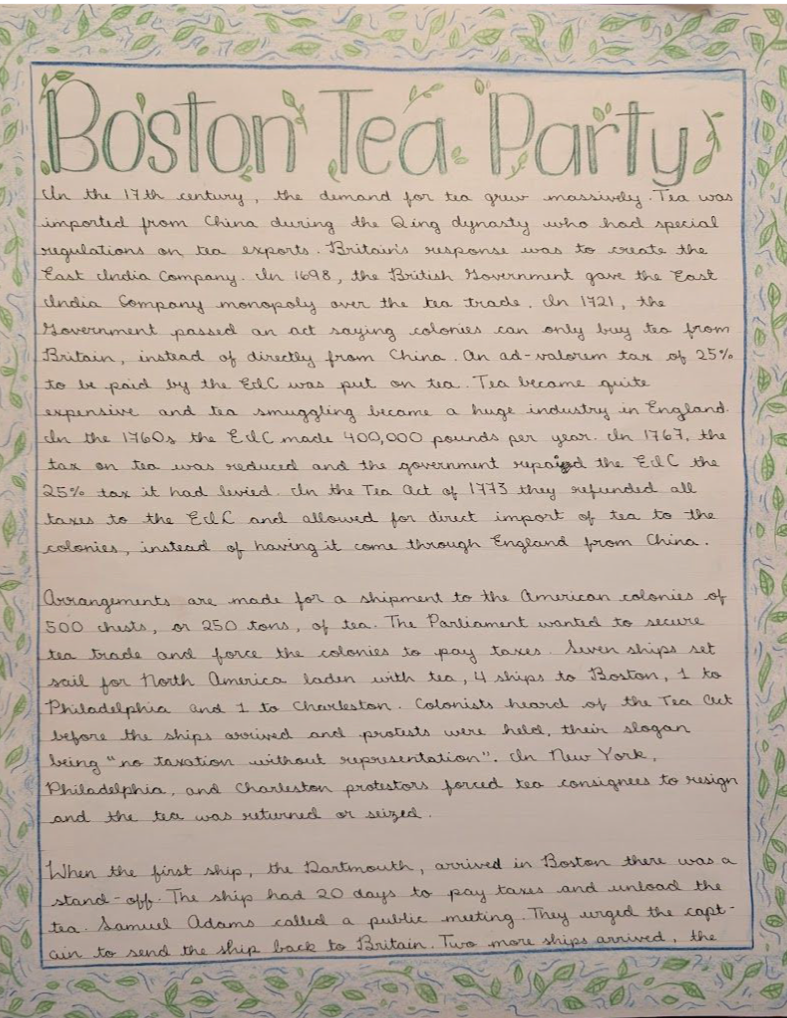 Boston Tea Party
In the 17th century, the demand for tea grew massively. Tea was
imported from China during the Qing dynasty who had special
regulations on tea exports. Britain's response was to create the
East India Company. In 1698, the British Government gave the East
India Company monopoly over the tea trade. In 1721, the
Government passed an act saying colonies can only buy tea from
Britain, instead of directly from China. An ad-valorem tax of 25%
to be paid by the EIC was put on tea. Tea became quite
expensive and tea smuggling became a huge industry in England.
In the 1760s the EIC made 400,000 pounds per year. In 1767, the
tax on tea was reduced and the government repaid the EIC the
25% tax it had levied. In the Tea Act of 1773 they refunded all
taxes to the EIC and allowed for direct import of tea to the
colonies, instead of having it come through England from China.
Arrangements are made for a shipment to the American colonies of
500 chests, or 250 tons, of tea. The Parliament wanted to secure
tea trade and force the colonies to pay taxes. Seven ships set
sail for North America laden with tea, 4 ships to Boston, 1 to
Philadelphia and 1 to Charleston. Colonists heard of the Tea Act
before the ships arrived and protests were held, their slogan
being "no taxation without representation". In New York,
Philadelphia, and Charleston protestors forced tea consignees to resign
and the tea was returned or seized.
When the first ship, the Dartmouth, arrived in Boston there was a
stand-off. The ship had 20 days to pay taxes and unload the
tea. Samuel Adams called a public meeting. They urged the capt-
ain to send the ship back to Britain. Two more ships arrived, the